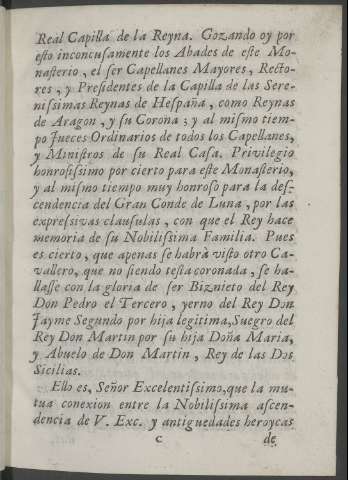 Real Capilla de la Reyna. Gozando oy por
eſto inconcuſamente los Abades de eſte Mo-
naſterio, el ſer Capellanes Mayores, Recto-
res, y Preſidentes de la Capilla de las Sere-
niſsimas Reynas de Heſpaña, como Reynas
de Aragon, y ſu Corona; y al miſmo tiem-
po Jueces Ordinarios de todos los Capellanes,
y Miniſtros de ſu Real Caſa. Privilegio
honroſiſsimo por cierto para eſte Monaſterio,
y al miſmo tiempo muy honroſo para la deſ-
cendencia del Gran Conde de Luna, por las
expreſsivas clauſulas, con que el Rey hace
memoria de ſu Nobiliſsima Familia. Pues
es cierto, que apenas ſe habrà viſto otro Ca-
vallero, que no ſiendo teſta coronada, ſe ha-
llaſſe con la gloria de ſer Biznieto del Rey
Don Pedro el Tercero, yerno del Rey Don
Jayme Segundo por hija legitima, Suegro del
Rey Don Martin por ſu hija Doña Maria,
y Abuelo de Don Martin, Rey de las Dos
Sicilias.
Ello es, Señor Excelentiſsimo, que la mu-
tua conexion entre la Nobiliſsima aſcen-
dencia de V. Exc. y antiguedades heroycas
c de